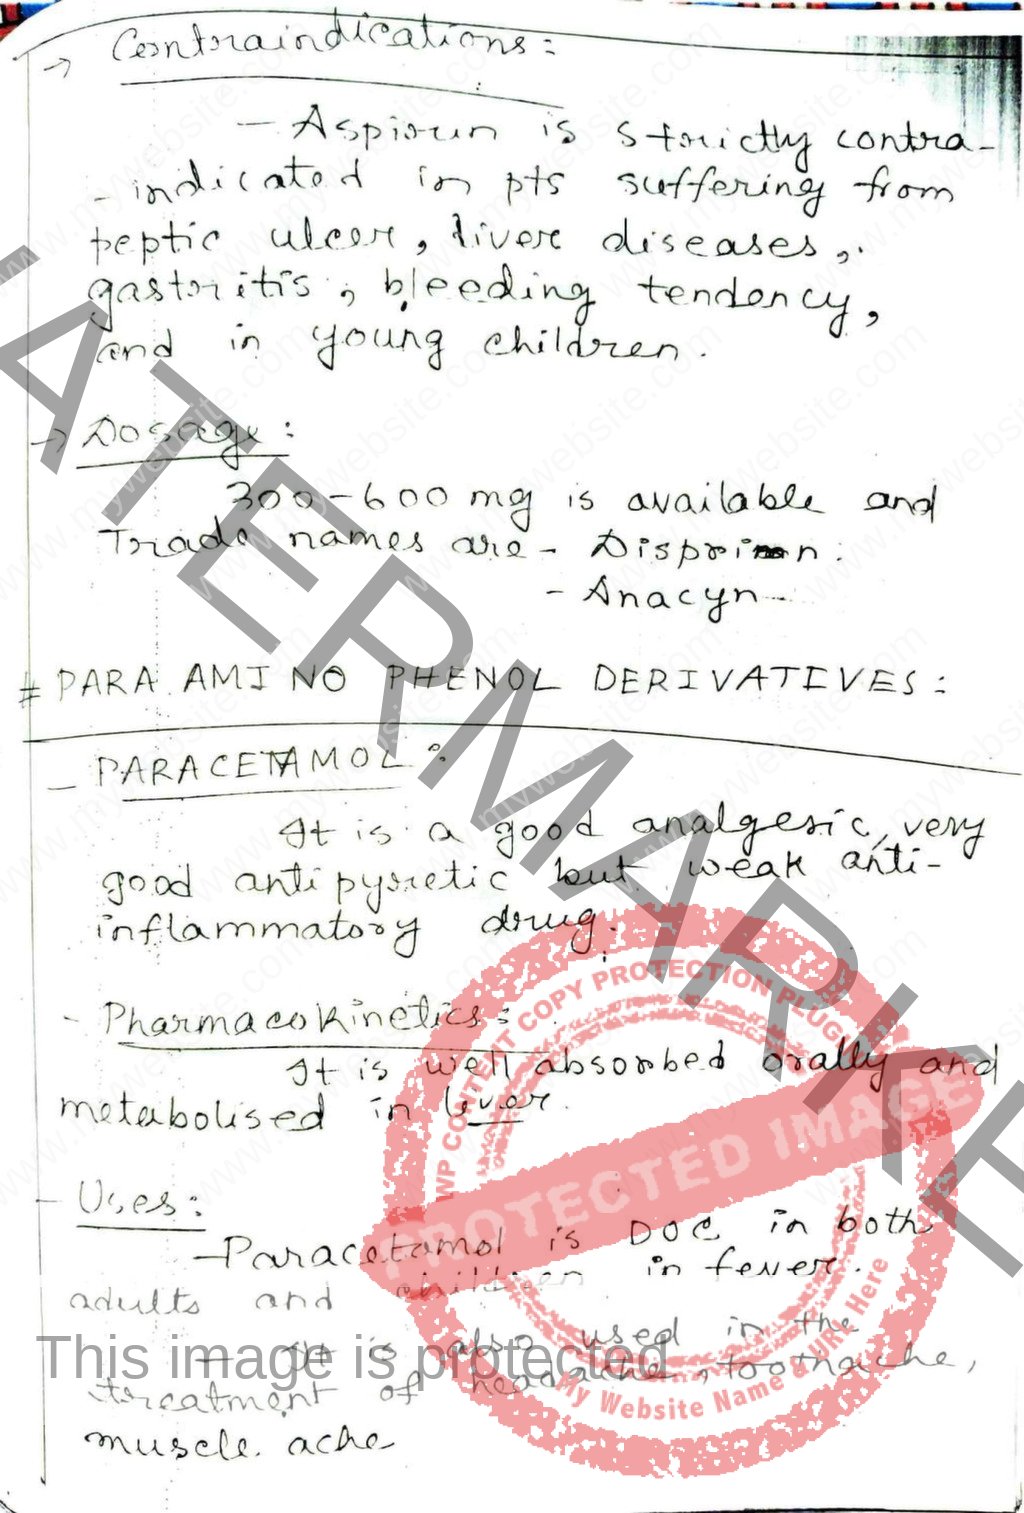 → Contraindications:
- Aspirin is strictly contra-
- indicated in pts suffering from
peptic ulcer, liver diseases,
gastritis, bleeding tendency,
and in young children.
→ Dosage:
300-600 mg is available and
Trade names are - Disprin.
- Anacyn
# PARA AMINO PHENOL DERIVATIVES:
- PARACETAMOL:
It is a good analgesic, very
good antipyretic but weak anti-
inflammatory drug.
- Pharmacokinetics:
It is well absorbed orally and
metabolised in liver.
- Uses:
- Paracetamol is DOC in both
adults and children in fever.
- It is also used in the
treatment of headache, toothache,
muscle ache
WATERMARKED
This image is protected
WP CONTENT COPY PROTECTION PLUGIN
PROTECTED IMAGE
My Website Name & URL Here
www.mywebsite.com